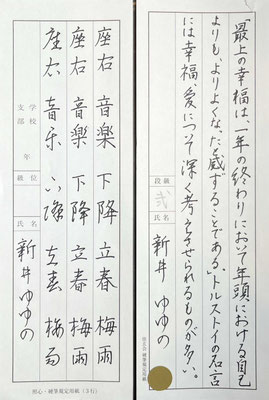 「最上の幸福は、一年の終わりにおいて年頭における自己
よりも、よりよくなったと感ずることである。」トルストイの名言
には幸福、愛について深く考えさせられるものが多い。
段級
氏名
新井 ゆゆの
照心・硬筆規定用紙
座右 音楽 下降 立春 梅雨
座右 音楽 下降 立春 梅雨
座右 音楽 下降 立春 梅雨
学校
支部
年
級位
氏名
新井 ゆゆの
照心・硬筆規定用紙(3行)